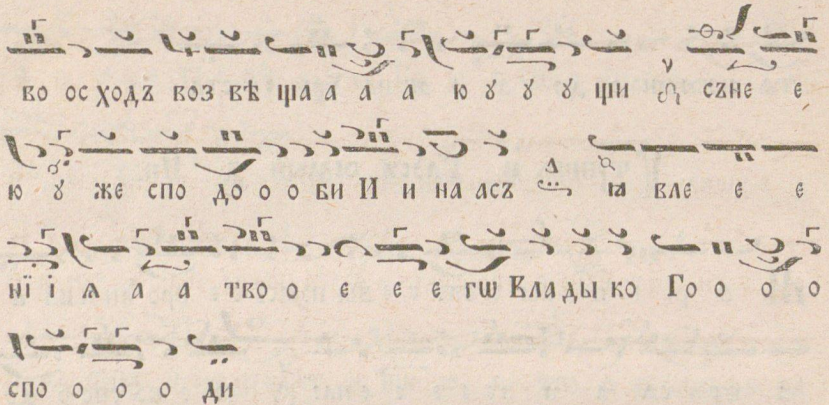 во ос ходъ воз вѣ ща а а а ю у у у щи съне е е
ю у же спо до о о би И и на асъ ꙗ вле е е е
нї і ѧ а а тво о е е е гѡ Влады ко Го о о о
спо о о о ди